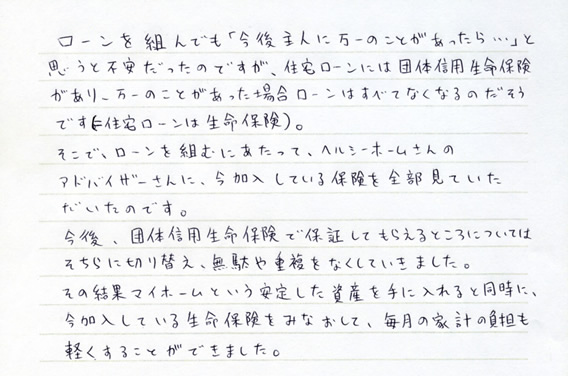 ローンを組んでも「今後主人に万一のことがあったら…」と
思うと不安だったのですが、住宅ローンには団体信用生命保険
があり、万一のことがあった場合ローンはすべてなくなるのだそう
です(=住宅ローンは生命保険)。
そこで、ローンを組むにあたって、ヘルシーホームさんの
アドバイザーさんに、今加入している保険を全部見ていた
だいたのです。
今後、団体信用生命保険で保証してもらえるところについては
そちらに切り替え、無駄や重複をなくしていきました。
その結果マイホームという安定した資産を手に入れると同時に、
今加入している生命保険をみなおして、毎月の家計の負担も
軽くすることができました。